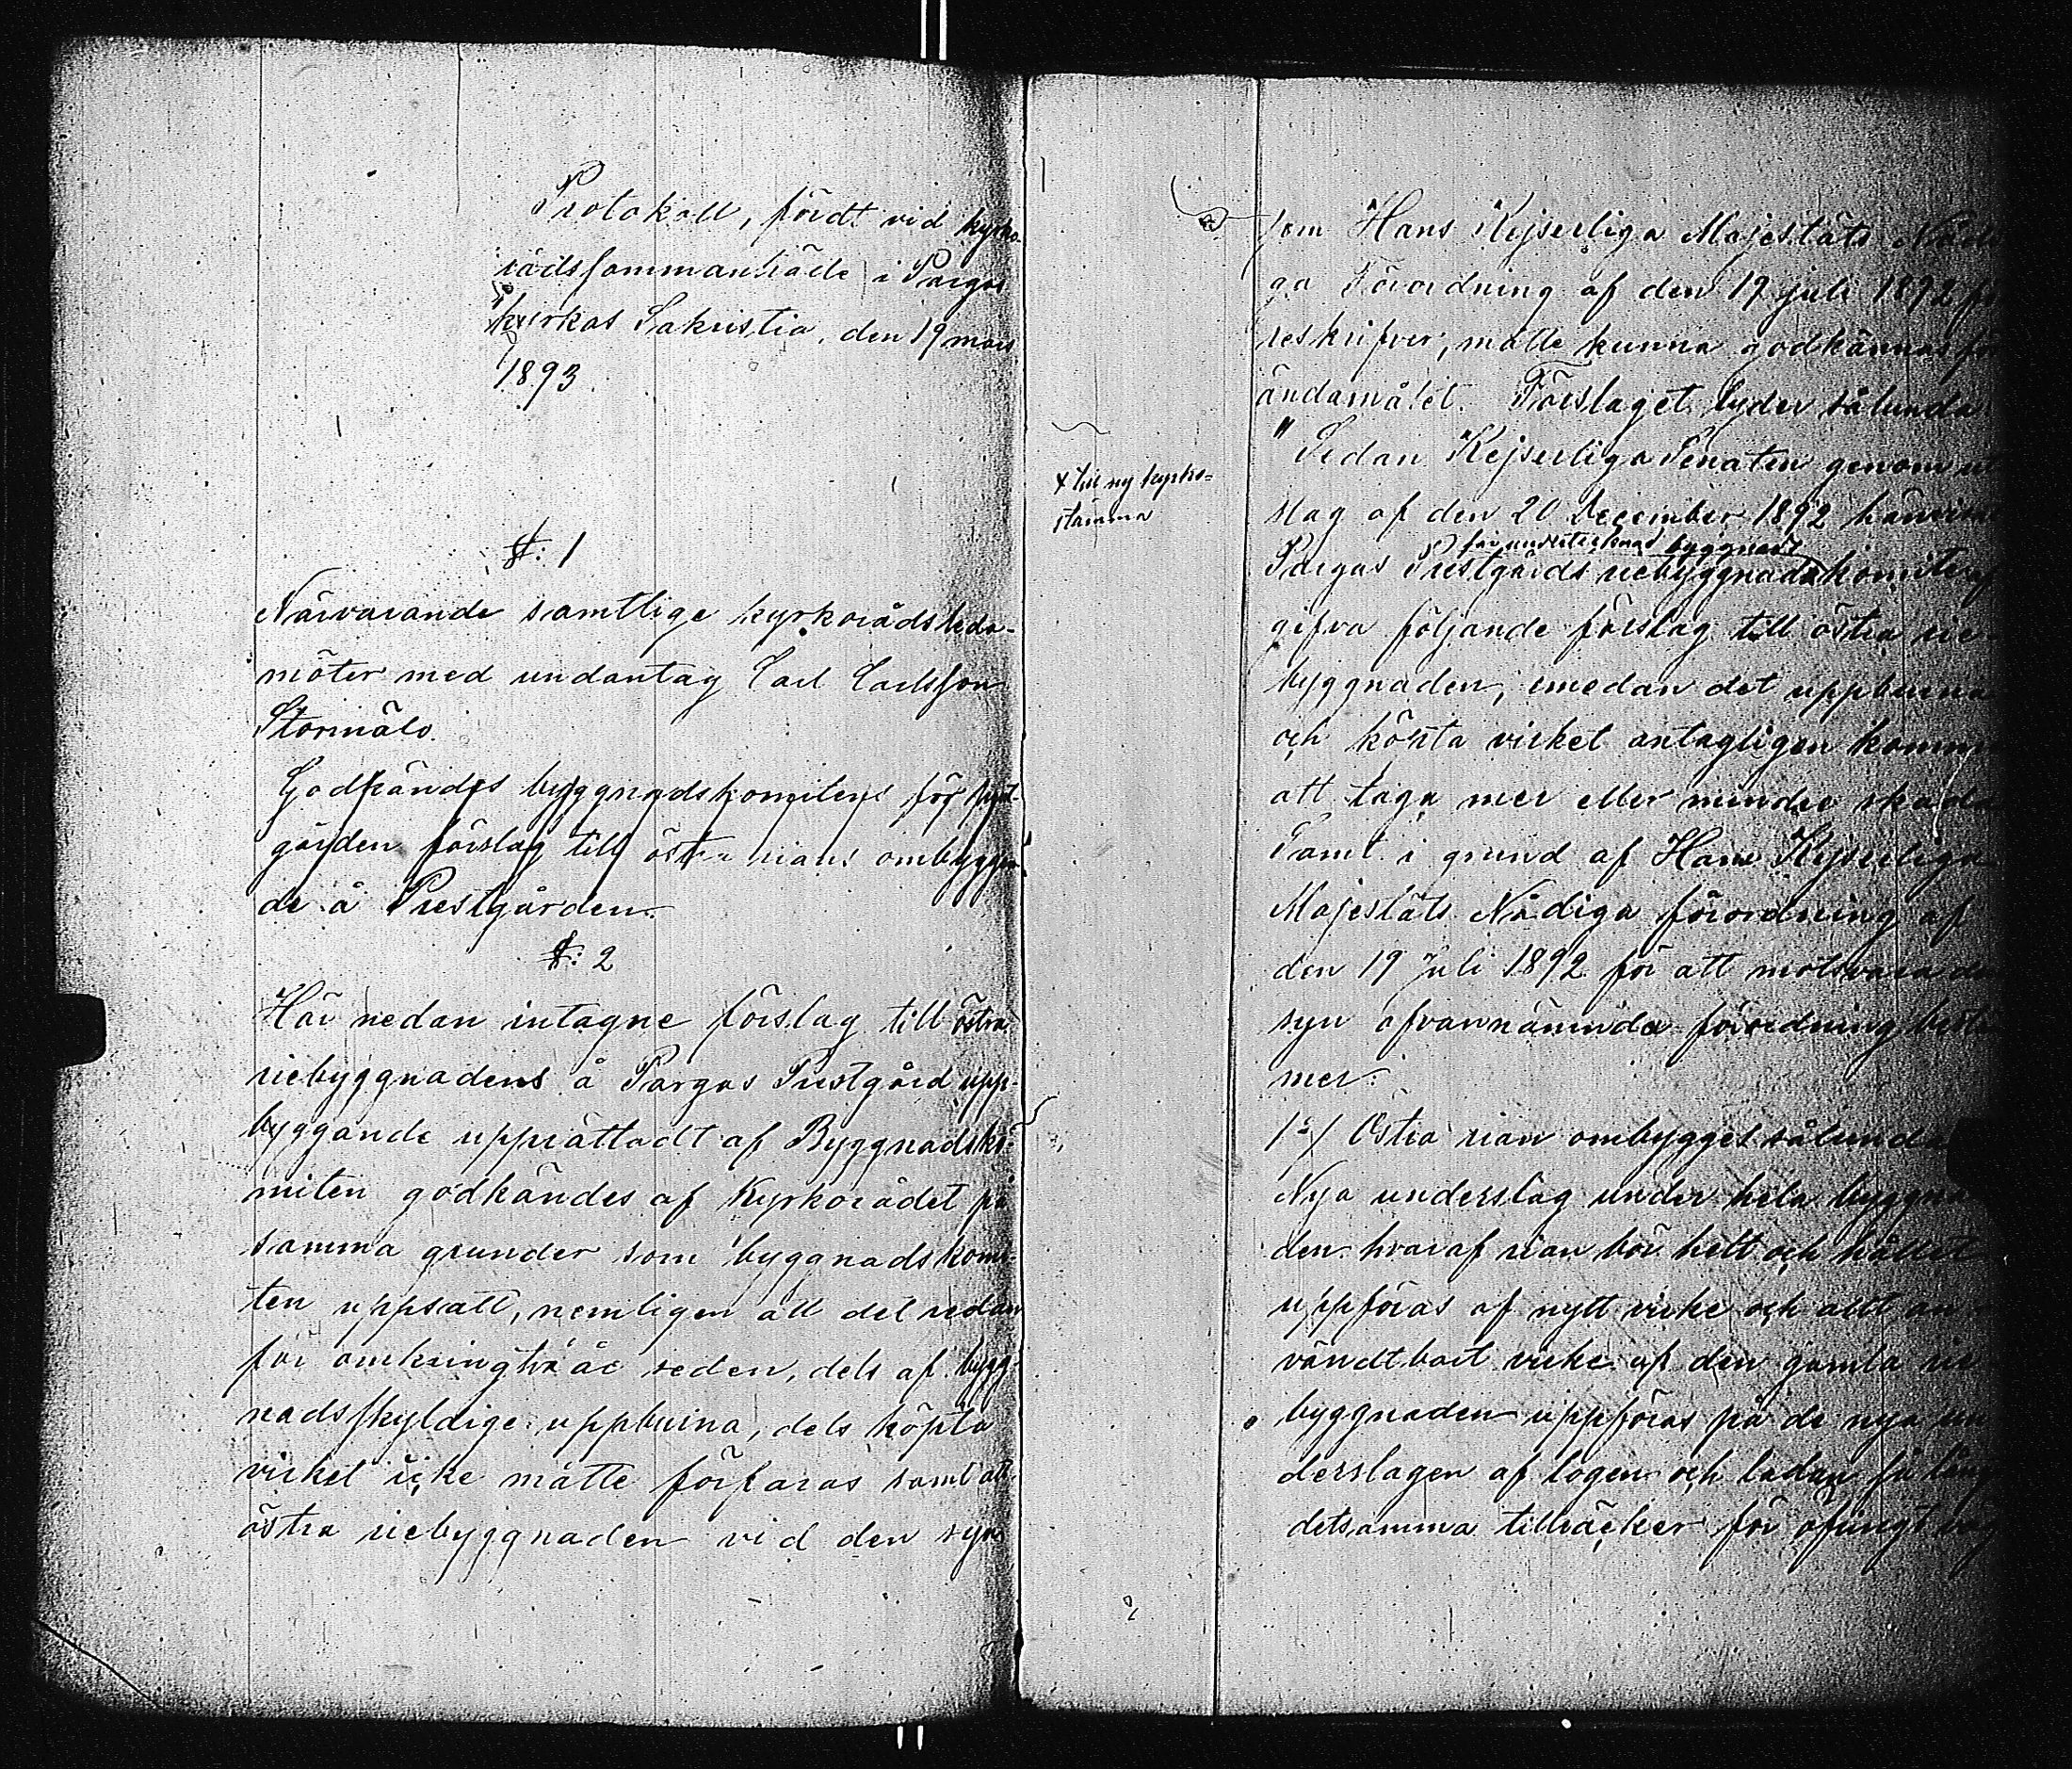 Protokoll, fördt vid kyrko-
rådssammanträde i Pargas
kyrkas Sakristia, den 19 mars
1893.
§: 1
Närvarande samtlige kyrkorådsleda-
möter med undantag Carl Carlsson
Stormälö.
Godkändes byggnadskomitens för prest-
gården förslag till östra rians ombyggan-
de å Prestgården.
§: 2
Här nedan intagne förslag till östra
riebyggnadens å Pargas Prestgård upp-
byggande upprättadt af Byggnadsko-
miten godkändes af Kyrkorådet på
samma grunder som byggnadskomi-
ten uppsatt, nemligen att det redan
för omkring två år sedan, dels af bygg-
nadsskyldige uppburna, dels köpta
virket icke måtte förfaras samt att
östra riebyggnaden vid den syn
som Hans Kejserliga Majestäts Nådi
ga Förordning af den 19 juli 1892 fö
reskrifver, måtte kunna godkännas för
ändamålet. Förslaget lyder sålunda
"Sedan Kejserliga Senaten genom ut
slag af den 20 December 1892 hänvisat
x till ny kyrko-
stämma
får undertecknad byggnads
Pargas Prestgårds riebyggnads komite
gifva följande förslag till östra rie-
byggnaden, emedan det uppburna
och köpta virket antagligen kommer
att taga mer eller mindre skada
Samt i grund af Hans Kejserliga
Majestäts Nådiga förordning af
den 19 Juli 1892 för att motsvara de
syn ofvannämnda förordning bestä
mer:
1º/ Östra rian ombygges sålunda
Nya underslag under hela byggna
den hvaraf rian bör helt och hållet
uppföras af nytt virke och allt an
vändtbart virke af den gamla rie
byggnaden uppföras på de nya un
derslagen af logen och ladan så långt
detsamma tillräcker för öfrigt